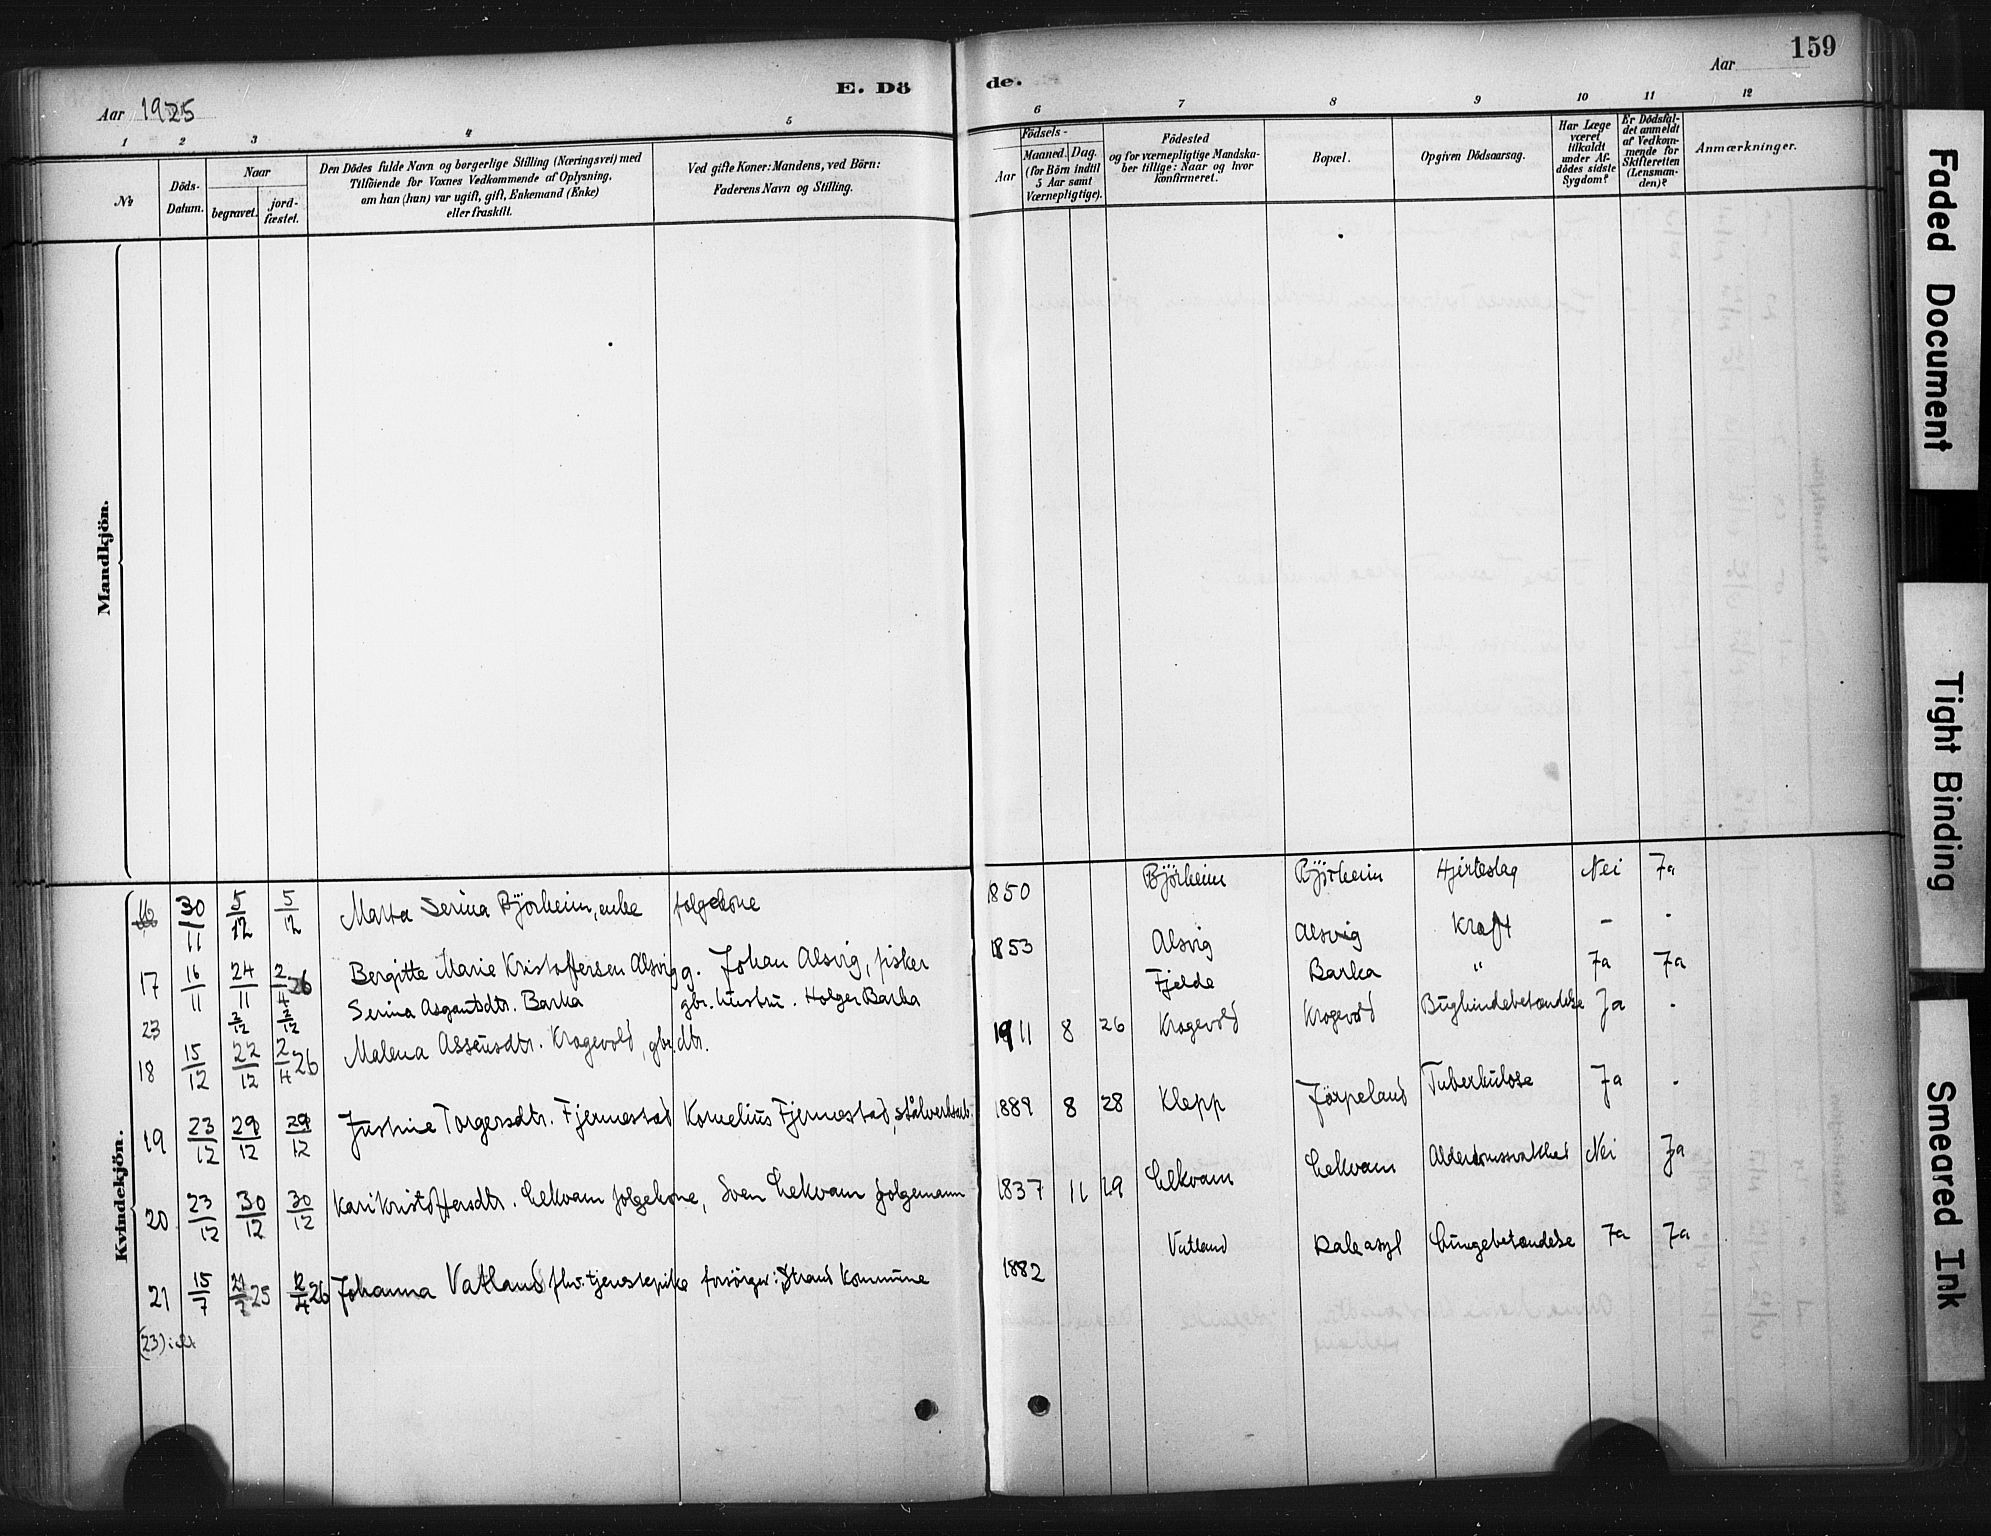 159
E. Dö de.
Aar 1925
Aar
1 2 3 4 5 6 7 8 9 10 11 12
№
Döds-Datum.
Naar
begravet.
jord-fæstet.
Den Dödes fulde Navn og borgerlige Stilling (Næringsvei) med
Tilföiende for Voxnes Vedkommende af Oplysning,
om han (hun) var ugift, gift, Enkemand (Enke)
eller fraskilt.
Ved gifte Koner: Mandens, ved Börn:
Faderens Navn og Stilling.
Födsels-
Aar
Maaned. Dag.
(for Börn indtil
5 Aar samt
Værnepligtige).
Födested
og for værnepligtige Mandska-
ber tillige: Naar og hvor
konfirmeret.
Bopæl.
Opgiven Dödsaarsag.
Har Læge
været
tilkaldt
under Af-
dödes sidste
Sygdom?
Er Dödsfal-
det anmeldt
af Vedkom-
mende for
Skifteretten
(Lensman-
den)?
Anmærkninger.
Mandkjön.
Kvindekjön.
16 30/11 5/12 5/12 Marta Serina Bjørheim, enke folgekone 1850 Bjørheim Bjørheim Hjerteslag Nei Ja
17 16/11 24/11 2/4 26 Bergitte Marie Kristoffersen Alsvig g. Johan Alsvig, fisker 1853 Alsvig Alsvig Kræft - -
23 2/12 2/12 Serina Asgautsdtr. Barka gbr. hustru. Holger Barka Fjelde Barka " Ja Ja
18 15/12 22/12 2/4 26 Malena Assensdtr. Krogevold, gbr. dtr. 1911 8 26 Krogevold Krogevold Bughindebetændelse Ja -
19 23/12 29/12 29/12 Justine Torgersdtr. Fjermestad Kornelius Fjermestad, stålverksarb. 1889 8 28 Klepp Jörpeland Tuberkulose Ja -
20 23/12 30/12 30/12 Kari Kristoffersdtr. Lekvam folgekone, Sven Lekvam folgemann 1837 11 29 Lekvam Lekvam Alderdomssvakhet Nei Ja
21 15/7 21/7 25 12/4 26 Johanna Vatland fhv. tjenestepike forsörger: Strand kommune 1882 Vatland Dale asyl Lungebetændelse Ja Ja
(23)
Faded Document
Tight Binding
Smeared Ink